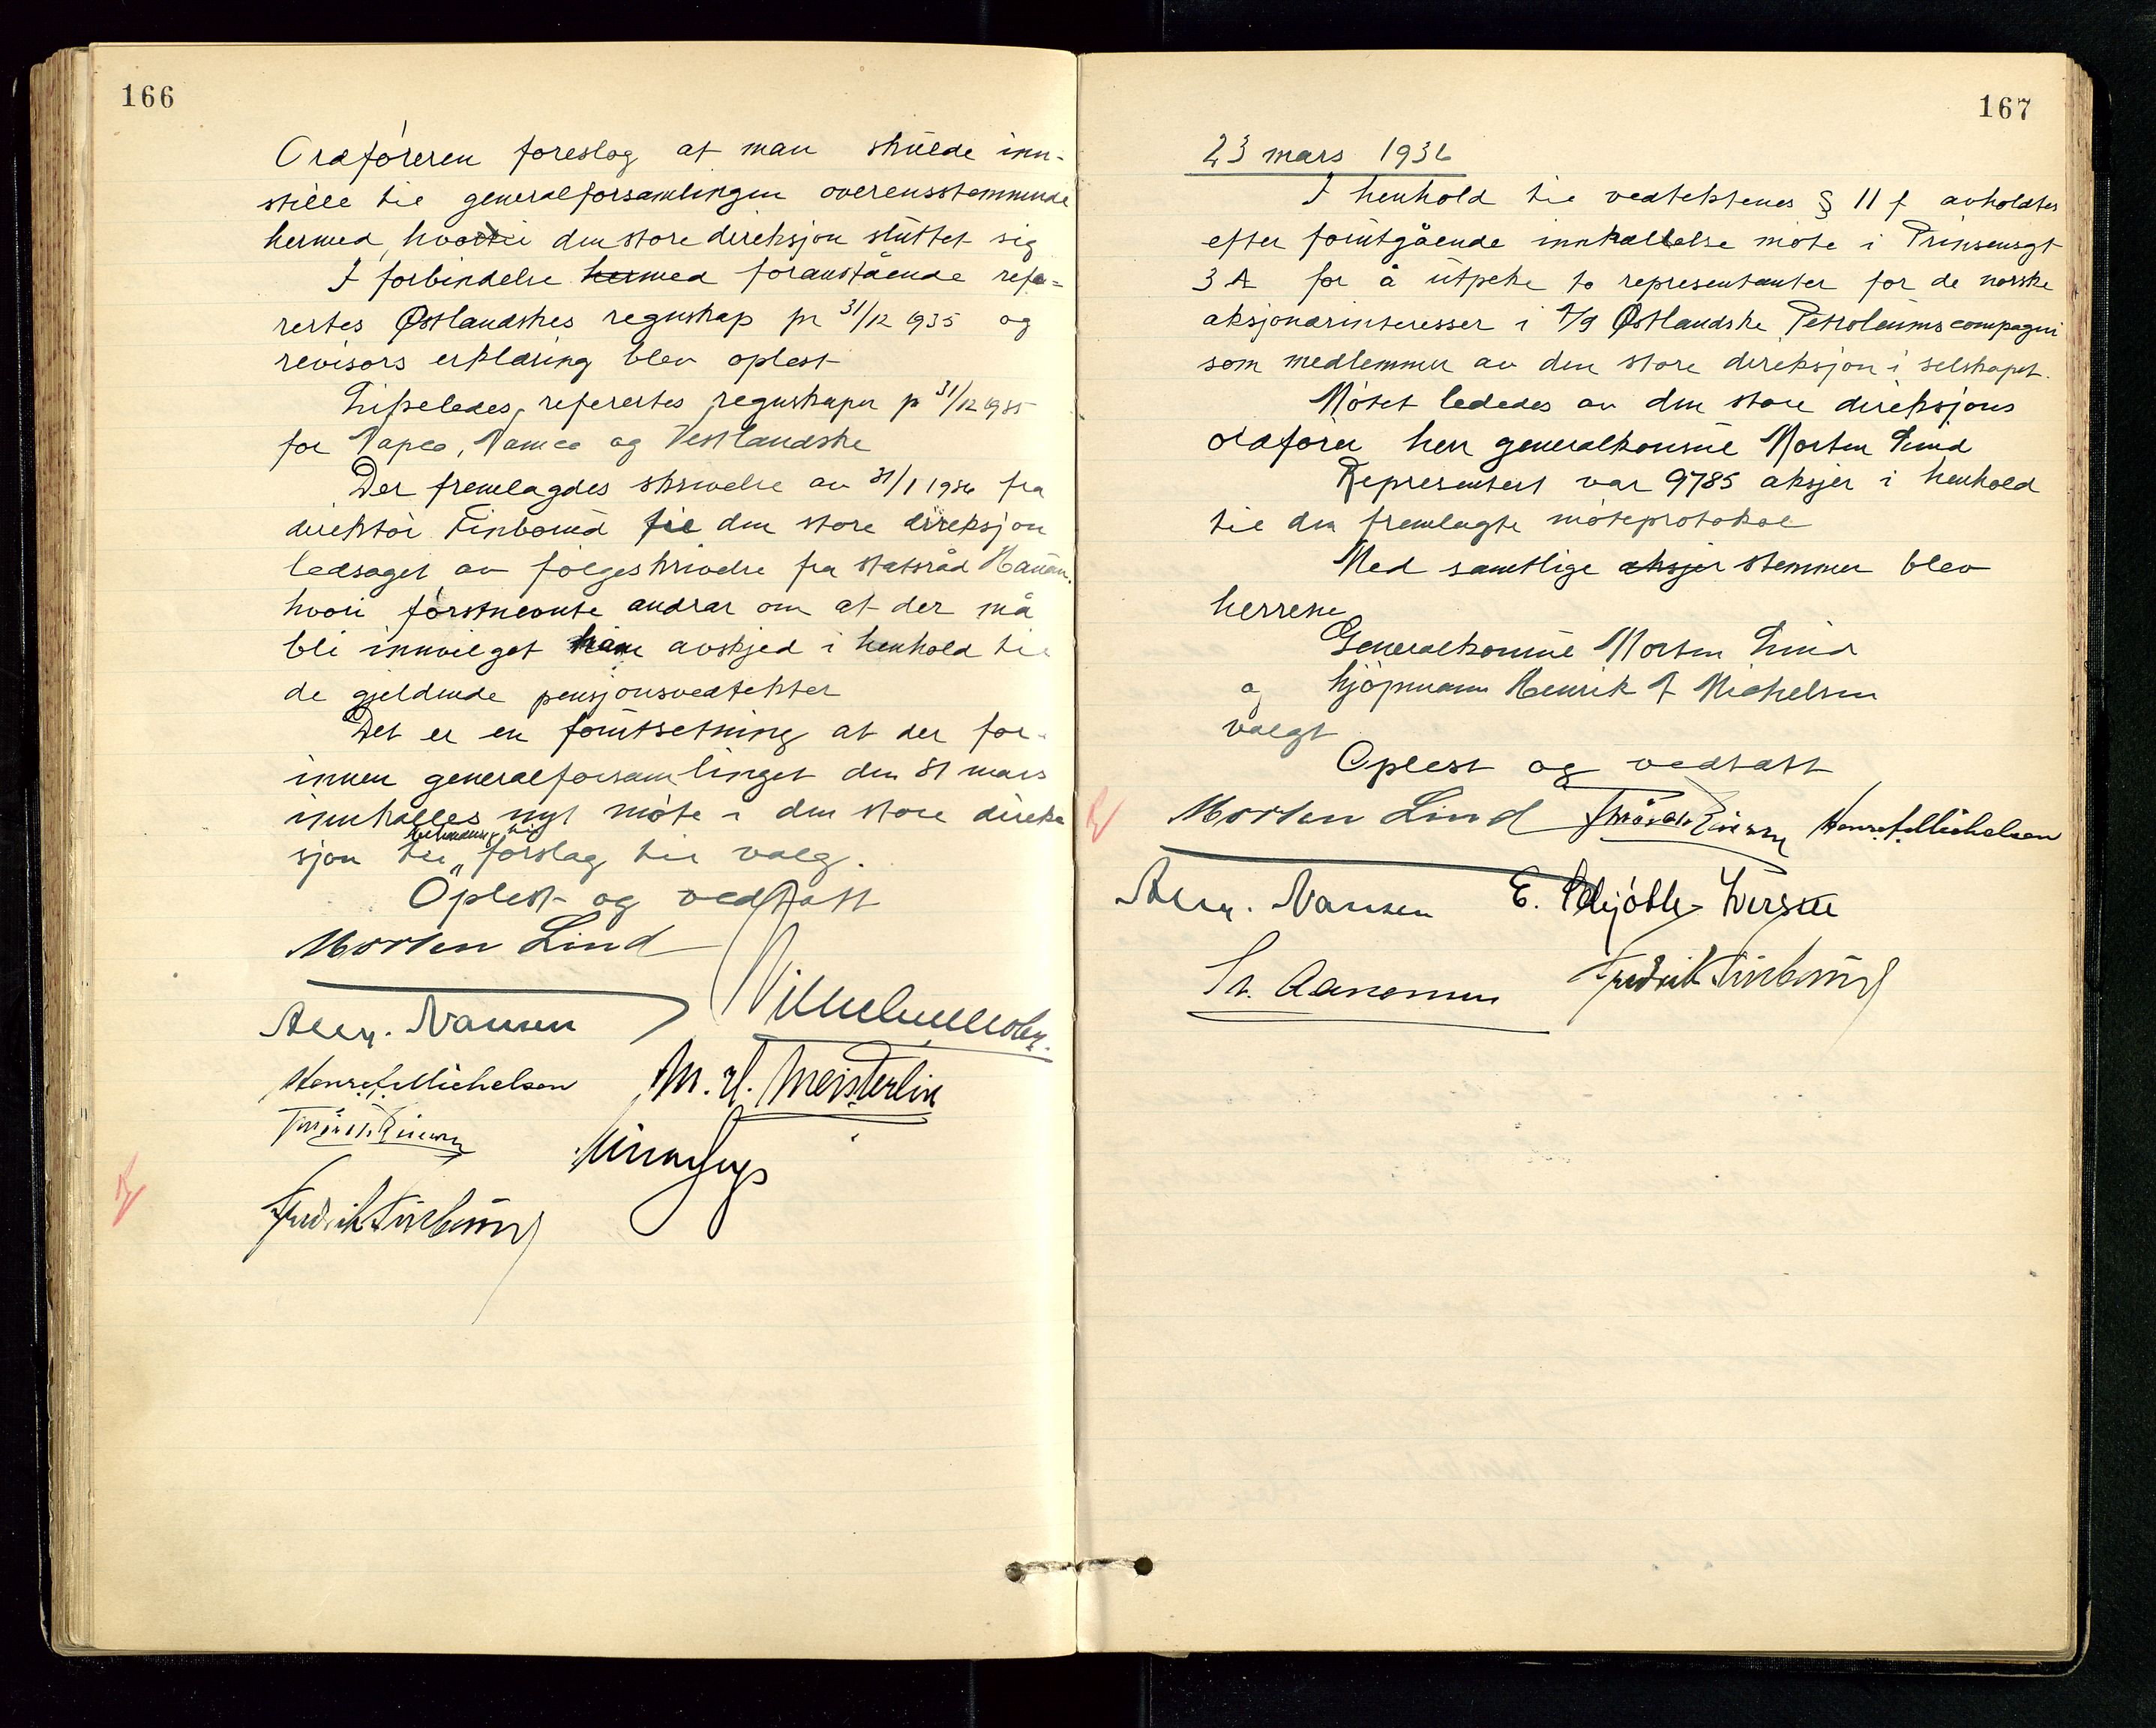 166
Ordføreren foreslog at man skulde inn-
stille til generalforsamlingen overensstemmende
hermed, hvortil den store direksjon sluttet sig
I forbindelse hermed foranstående refe-
rertes Østlandskes regnskap pr 31/12 1935 og
revisors erklæring blev oplest
Likeledes referertes regnskaper pr 31/12 1935
for Vapco, Namco og Vestlandske
Der fremlagdes skrivelse av 31/1 1936 fra
direktør Finborud til den store direksjon
ledsaget av følgeskrivelse fra statsråd
hvori førstnevnte andrar om at der må
bli innvilget ham avskjed i henhold til
de gjeldende pensjonsvedtekter
Det er en forutsetning at der for-
innen generalforsamlinget den 31 mars
innkalles nyt møte i den store direk-
sjon til behandling av forslag til valg.
Oplest og vedtatt
Morten Lind
Alex. Nansen
Henr. f. Michelsen
M. H. Meisterlin
167
23 mars 1936
I henhold til vedtektenes § 11 f avholdtes
efter forutgående innkallelse møte i Prinsensgt
3 A for å utpeke to representanter for de norske
aksjonærinteresser i A/S Østlandske Petroleumscompagni
som medlemmer av den store direksjon i selskapet.
Møtet lededes av den store direksjons
ordfører herr generalkonsul Morten Lind
Representert var 9785 aksjer i henhold
til den fremlagte møteprotokol
Med samtlige aksjer stemmer blev
herrene
Generalkonsul Morten Lind
og kjøpmann Henrik f Michelsen
valgt
Oplest og vedtatt
Morten Lind Henr. f. Michelsen
Alex. Nansen E. Schjøtt-Iversen
Aanonsen